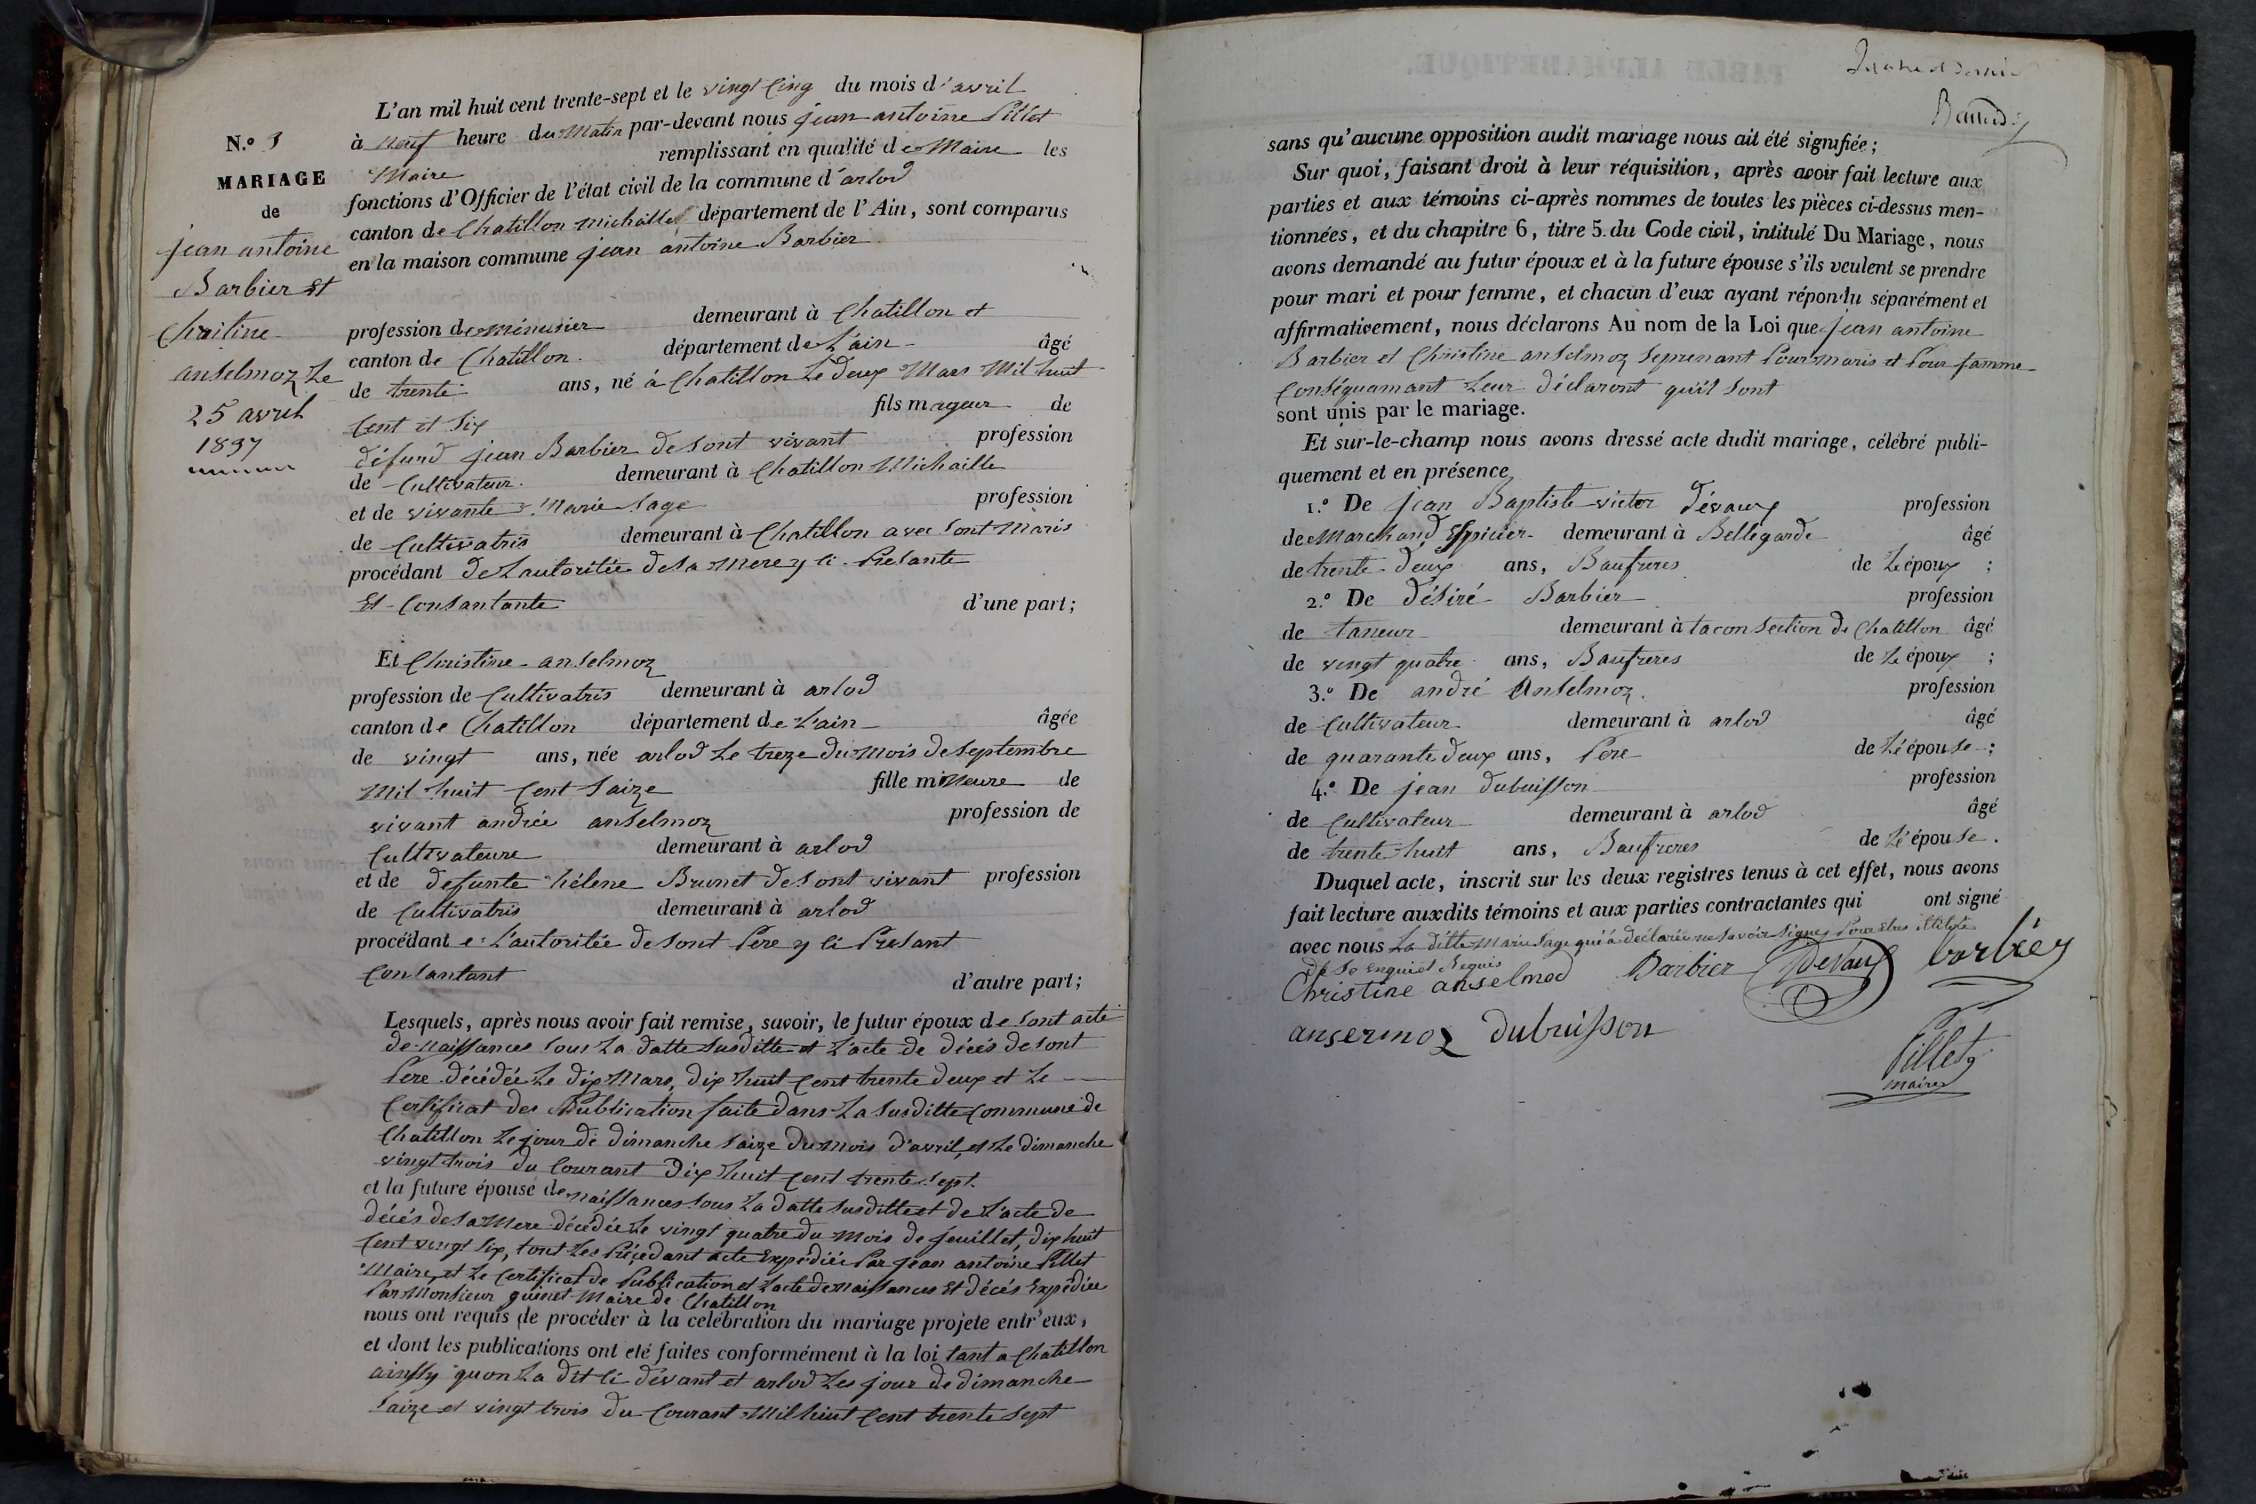 N.º 3
MARIAGE
de
jean antoine
Barbier et
Chritine
anselmoz Le
25 avril
1837
L'an mil huit cent trente-sept et le vingt Cinq du mois d'avril
à neuf heure du Matin par-devant nous jean antoine Pillet
Maire remplissant en qualité de Maire les
fonctions d'Officier de l'état civil de la commune d'arlod
canton de Chatillon michaille, département de l'Ain, sont comparus
en la maison commune jean antoine Barbier
profession de ménusier demeurant à Chatillon et
canton de Chatillon département de L'ain âgé
de trente ans, né à Chatillon Le deux Mars Mil huit
Cent et Six fils mageur de
défund jean Barbier de sont vivant profession
de Cultivateur demeurant à Chatillon Michaille
et de vivante Marie Sage profession
de Cultivatris demeurant à Chatillon avec Sont Maris
procédant de Lautoritée de sa Mere y ci Presante
Et Consantante d'une part;
Et Christine anselmoz
profession de Cultivatris demeurant à arlod
canton de Chatillon département de L'ain âgée
de vingt ans, née arlod Le treze du Mois de Septembre
Mil huit Cent Saize fille mineure de
vivant andrée anselmoz profession de
Cultivateure demeurant à arlod
et de defunte hélene Brunet de sont vivant profession
de Cultivatris demeurant à arlod
procédant e L'autoritée de sont Pere y ci Presant
Consantant d'autre part;
Lesquels, après nous avoir fait remise, savoir, le futur époux de Sont acte
de naissances sous La datte susditte et L'acte de décés de sont
Pere décédée Le dix Mars, dix huit Cent trente deux et Le
Certificat des Publication faite dans La susditte Commune de
Chatillon Le jour de dimanche Saize du mois d'avril, et Le dimanche
vingt trois du Courant dix huit Cent trente sept.
et la future épouse de naissances sous La datte susditte et de L'acte de
décés de sa Mere décédée Le vingt quatre du Mois de Jeuillet, dix huit
Cent vingt Six, tout Les Précedant acte Expédiée Par jean antoine Pillet
Maire, et Le Certificat de Publication et L'acte de naissances Et décés Expédiée
Par Monsieur guinet Maire de Chatillon
nous ont requis de procéder à la celébration du mariage projeté entr'eux,
et dont les publications ont eté faites conformément à la loi tant a Chatillon
ainssy quon La dit Ci devant et arlod Les jour de dimanche
Saize et vingt trois du Courant Mil huit Cent trente Sept
sans qu'aucune opposition audit mariage nous ait été signifiée;
Sur quoi, faisant droit à leur réquisition, après avoir fait lecture aux
parties et aux témoins ci-après nommes de toutes les pièces ci-dessus men-
tionnées, et du chapitre 6, titre 5 du Code civil, intitulé Du Mariage, nous
avons demandé au futur époux et à la future épouse s'ils veulent se prendre
pour mari et pour femme, et chacun d'eux ayant répondu séparément et
affirmativement, nous déclarons Au nom de la Loi que jean antoine
Barbier et Christine anselmoz se prenant Pour maris et Pour famme
Conséquamant Leur déclaront qu'il Sont
sont unis par le mariage.
Et sur-le-champ nous avons dressé acte dudit mariage, célébré publi-
quement et en présence
1.º De jean Baptiste victor dévaux profession
de Marchand Eppicier demeurant à Bellegarde âgé
de trente deux ans, Baufreres de L'époux ;
2.º De désiré Barbier profession
de taneur demeurant à tacon section de Chatillon âgé
de vingt quatre ans, Baufreres de L'époux ;
3.º De andré Anselmoz profession
de Cultivateur demeurant à arlod âgé
de quarante deux ans, Pere de L'épouse ;
4.º De jean dubuisson profession
de Cultivateur demeurant à arlod âgé
de trente huit ans, Baufreres de L'épouse.
Duquel acte, inscrit sur les deux registres tenus à cet effet, nous avons
fait lecture auxdits témoins et aux parties contractantes qui ont signé
avec nous La ditte Marie Sage qui a declarée ne savoir signer Pour Etre illiterée
de Se enquiet Requis
Christine anselmod Barbier Devaux barbier
ansermoz dubuisson
Pillet
maire